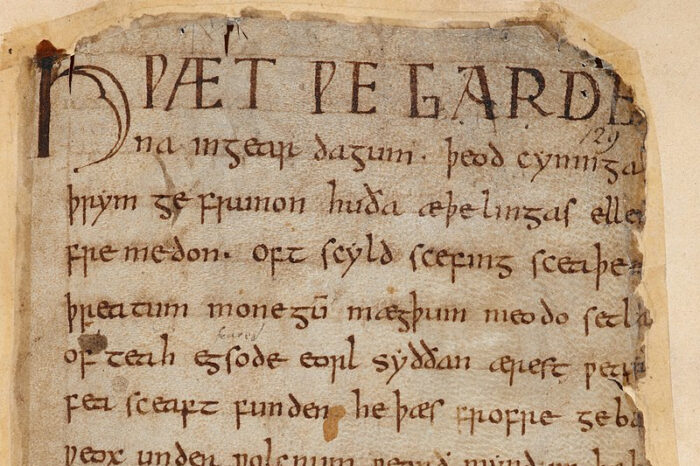 HǷÆT ǷE GARDE
129
na ingear dagum. þeod cyninga
þrym ge frunon huða æþelingas elle
fremedon. oft scyld scefing sceaþe
þreatum monegū mægþum meodo setla
of teah egsode eorl syððan ærest ƿear
fea sceaft funden he þæs frofre geba
ƿeox under ƿolcnum